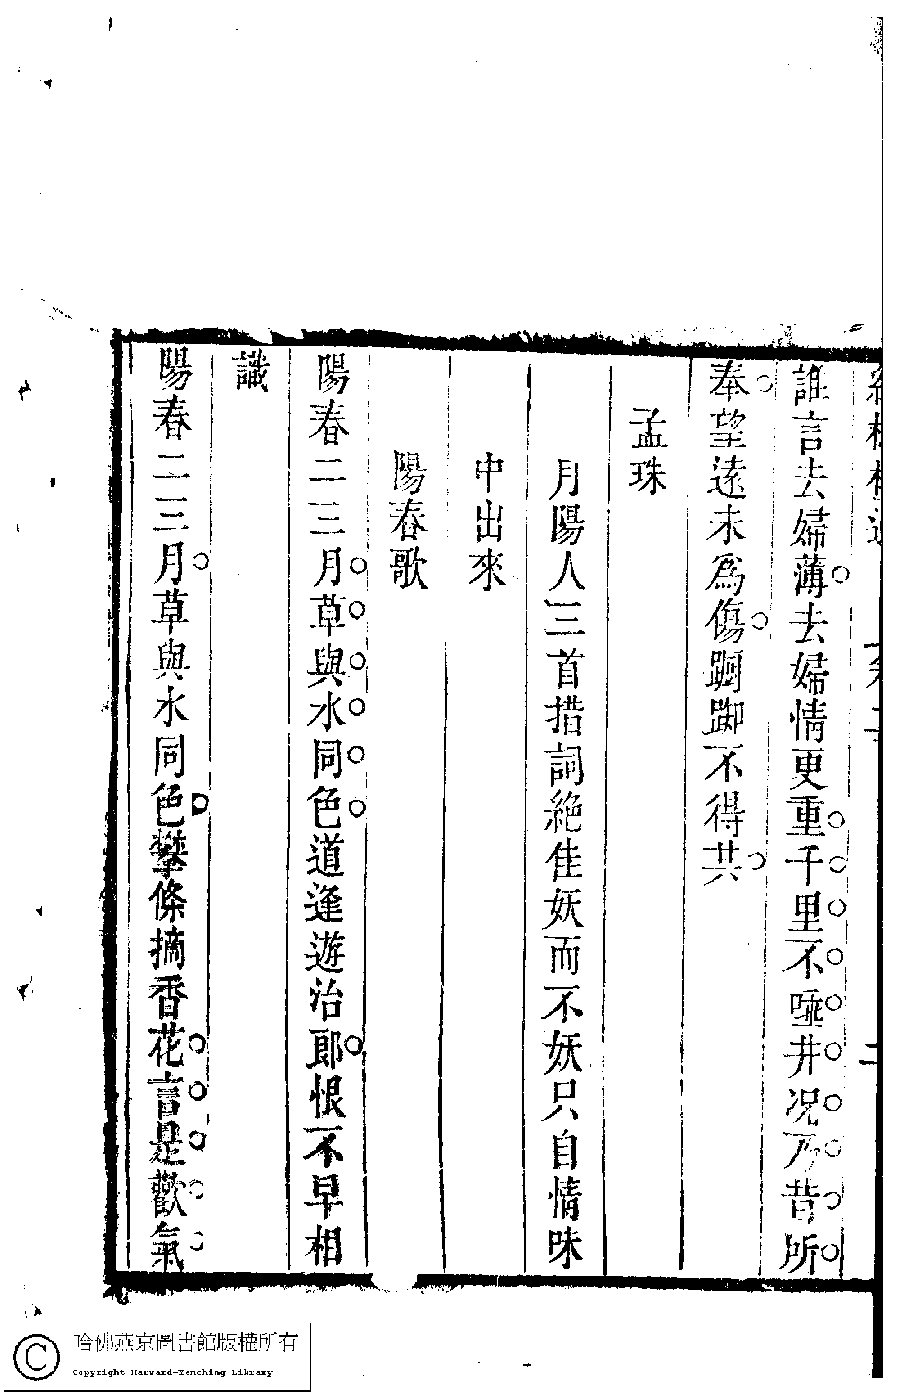 誰言去婦薄去婦情更重千里不唾井况乃昔所
奉望遠未爲傷踟躕不得共
孟珠
月陽人三首措詞絶佳妖而不妖只自情味
中出來
陽春歌
陽春二三月草與水同色道逢遊冶郎恨不早相
識
陽春二三月草與水同色攀條摘香花言是歡氣
哈佛燕京圖書館版權所有
Copyright Harvard-Yenching Library